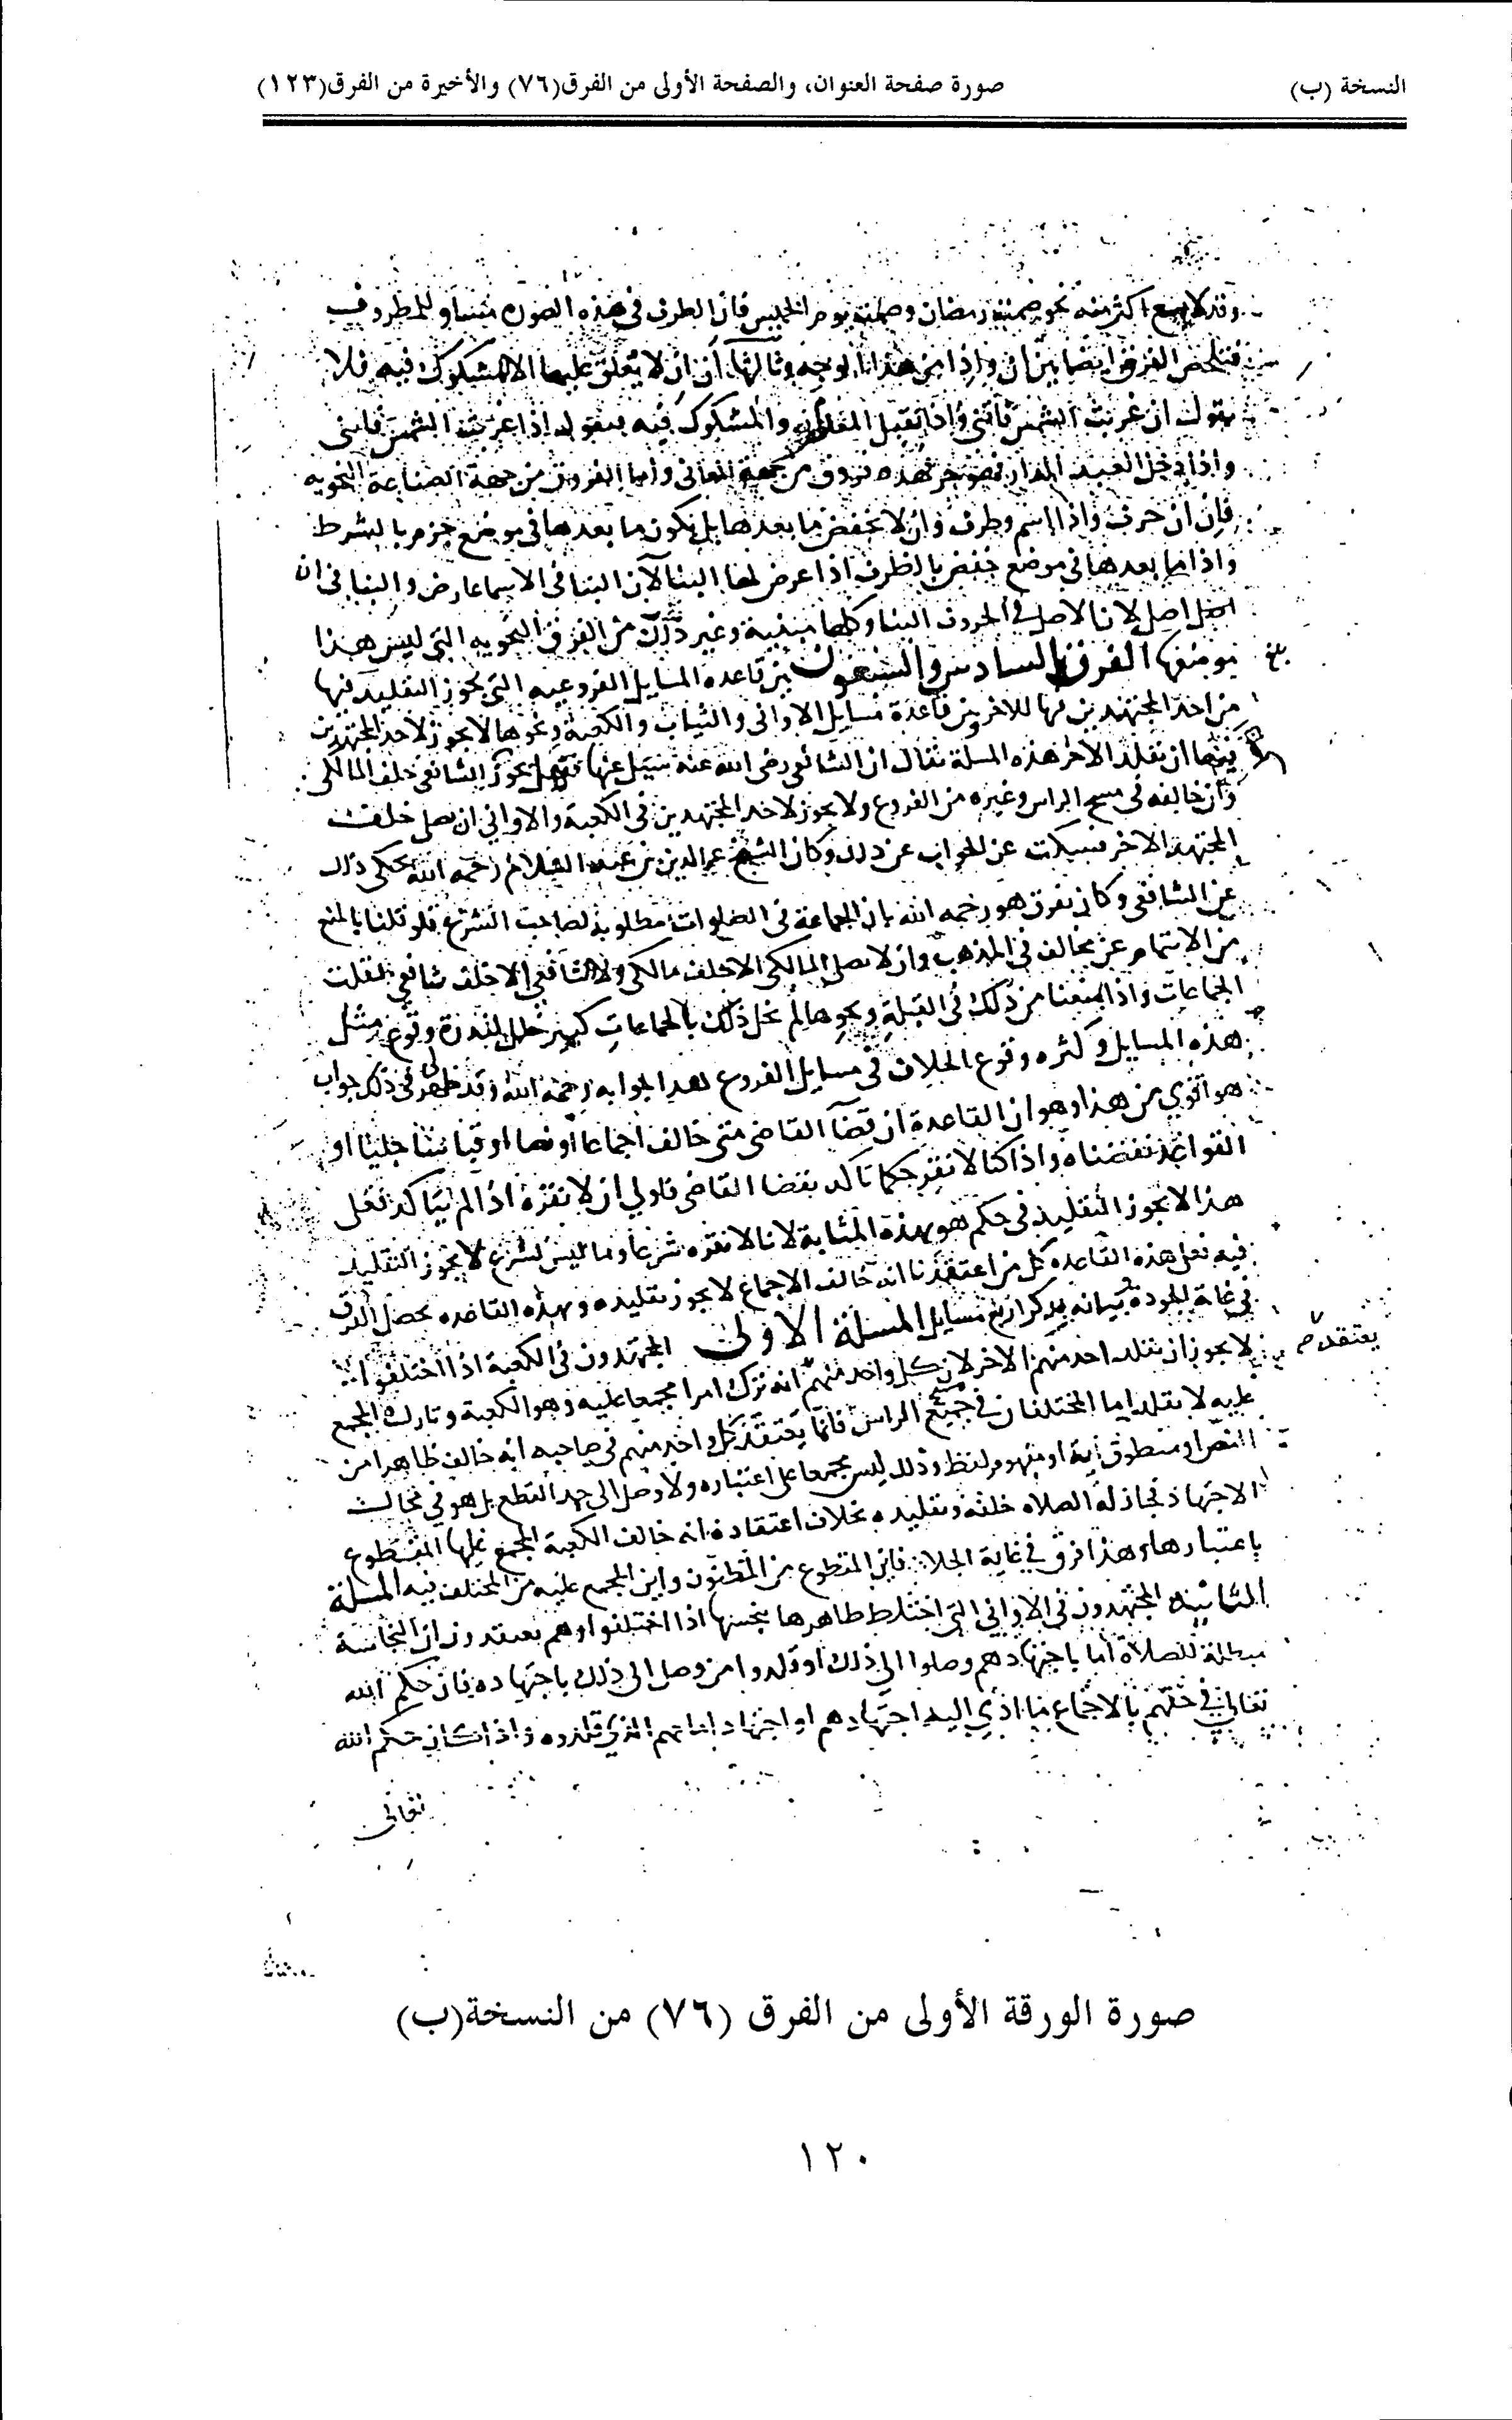 النسخة (ب) صورة صفحة العنوان، والصفحة الأولى من الفرق(٧٦) والأخيرة من الفرق(١٢٣)
وقد لا يسع اكثر منه نحو صمت رمضان وصمت يوم الخميس فان الظرف في هذه الصوره مساو للمظروف
فتلخص الفرق ايضا بين ان واذا من هذا الوجه وثالثها ان ان لا يعلق عليها الا المشكوك فيه فلا
تقول ان غربت الشمس فأتني واذا تقبل المعلوم والمشكوك فيه فتقول اذا غربت الشمس فأتني
واذا دخل العبد الدار فهو حر فهذه فروق من جهة المعاني واما الفروق من جهة الصناعة النحويه
فان ان حرف واذا اسم وظرف وان لا تخفض ما بعدها بل يكون ما بعدها في موضع جزم بالشرط
واذا ما بعدها في موضع خفض بالظرف اذا عرض لها البنا لان البنا في الاسما عارض والبنا في ان
اصل لان الاصل في الحروف البنا وكلها مبنية وغير ذلك من الفروق النحويه التي ليس هذا
موضعها الفرق السادس والسبعون بين قاعده المسايل الفروعيه التي يجوز التقليد فيها
من احد المجتهدين فيها للاخر وبين قاعدة مسايل الاواني والثياب والكعبة ونحوها لا يجوز لاحد المجتهدين
فيها ان يقلد الاخر هذه المسلة يقال ان الشافعي رضي الله عنه سيل عنها فقيل يجوز للشافعي خلف المالكي
وان خالفه في مسح الراس وغيره من الفروع ولا يجوز لاحد المجتهدين في الكعبة والاواني ان يصلي خلف
المجتهد الاخر فسكت عن الجواب عن ذلك وكان الشيخ عز الدين بن عبد السلام رحمه الله يحكي ذلك
عن الشافعي وكان يفرق هو رحمه الله بان الجماعة في الصلوات مطلوبة لصاحب الشرع فلو قلنا بالمنع
من الايتمام عن يخالف في المذهب وان لا يصلي المالكي الا خلف مالكي ولا الشافعي الا خلف شافعي لقلت
الجماعات واذا منعنا من ذلك في القبلة ونحوها لم يخل ذلك بالجماعات كبير خلل لندرة وقوع مثل
هذه المسايل وكثره وقوع الخلاف في مسايل الفروع هذا جوابه رحمه الله وقد ظهر لي في ذلك جواب
هو اقوي من هذا وهو ان القاعدة ان قضا القاضي متى خالف اجماعا او نصا او قياسا جليا او
القواعد نقضناه واذا كنا لا نقر حكما تاكد بقضا القاضي فاولي ان لا نقره اذا لم يتاكد فعلى
هذا لا يجوز التقليد في حكم هو بهذه المثابة لانا لا نقره شرعا وما ليس بشرع لا يجوز التقليد
فيه فعلى هذه القاعده كل من اعتقدنا انه خالف الاجماع لا يجوز تقليده وبهذه القاعده يحصل الفرق
في غاية الجودة بيانه بذكر اربع مسايل المسلة الاولى المجتهدون في الكعبة اذا اختلفوا
لا يجوز ان يقلد احد منهم الاخر لان كل واحد منهم يعتقد انه ترك امرا مجمعا عليه وهو الكعبة وتارك المجمع
عليه لا يقلد اما المختلفان في مسح جميع الراس فانما يعتقد كل واحد منهم في صاحبه انه خالف ظاهرا من
النص او منطوق اية او مفهوم لفظ وذلك ليس مجمعا على اعتباره ولا وصل الى حد القطع بل هو في مجالٍ
الاجتهاد فجاز له الصلاه خلفه وتقليده بخلاف اعتقاده انه خالف الكعبة المجمع عليها المقطوع
باعتبارها وهذا فرق في غاية الجلا فاين المقطوع من المظنون واين المجمع عليه من المختلف فيه المسلة
الثانية المجتهدون في الاواني التي اختلط طاهرها بنجسها اذا اختلفوا وهم يعتقدون ان النجاسة
مبطلة للصلاة اما باجتهادهم وصلوا الى ذلك او قلدوا من وصل الى ذلك باجتهاده فان حكم الله
تعالى في حقهم بالاجماع ما ادي اليه اجتهادهم او اجتهاد امامهم الذي قلدوه واذا كان حكم الله
تعالى
صورة الورقة الأولى من الفرق (٧٦) من النسخة(ب)
١٢٠